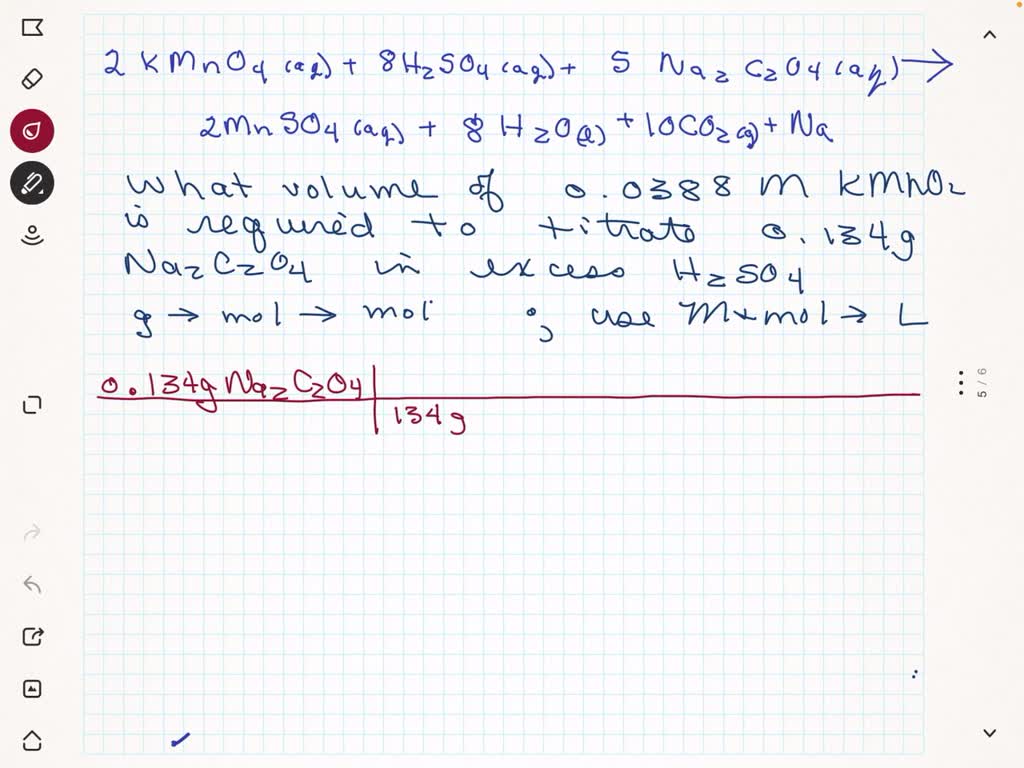 2 KMnO4 (aq) + 8H2SO4 (aq) + 5 Na2C2O4 (aq) →
2MnSO4 (aq) + 8 H2O(l) + 10CO2 (g) + Na
What volume of 0.0388 M KMnO2
is required to titrate 0.134g
Na2C2O4 in excess H2SO4
g → mol → mol ; use M + mol → L
0.134g Na2C2O4
134g
5 / 6